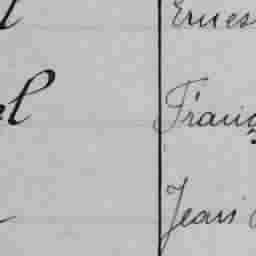 Ernes
el Franç
Jean